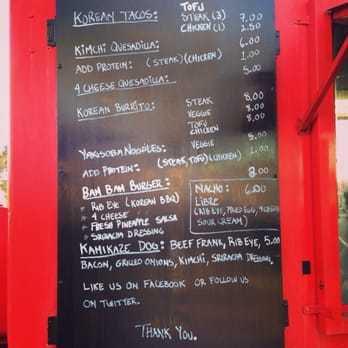 TOFU
KOREAN TACOS: STEAK (3) 7.00
CHICKEN (1) 2.50
KIMCHI QUESADILLA: 6.00
ADD PROTEIN: (STEAK)(CHICKEN) 1.00
4 CHEESE QUESADILLA: 5.00
KOREAN BURRITO: STEAK 8.00
VEGGIE 8.00
TOFU 8.00
CHICKEN
YAKISOBA NOODLES: VEGGIE 5.00
ADD PROTEIN: (STEAK, TOFU)(CHICKEN) 1.00
BAM BAM BURGER: 8.00
* RIB EYE (KOREAN BBQ)
* 4 CHEESE
* FRESH PINEAPPLE SALSA
* SRIRACHA DRESSING
NACHO: 6.00
LIBRE
(RIB EYE, FRIED EGG, 4 CHEESE
SOUR CREAM)
KAMIKAZE DOG: BEEF FRANK, RIB EYE, 5.00
BACON, GRILLED ONIONS, KIMCHI, SRIRACHA DRESSING,
LIKE US ON FACEBOOK OR FOLLOW US
ON TWITTER.
THANK YOU.